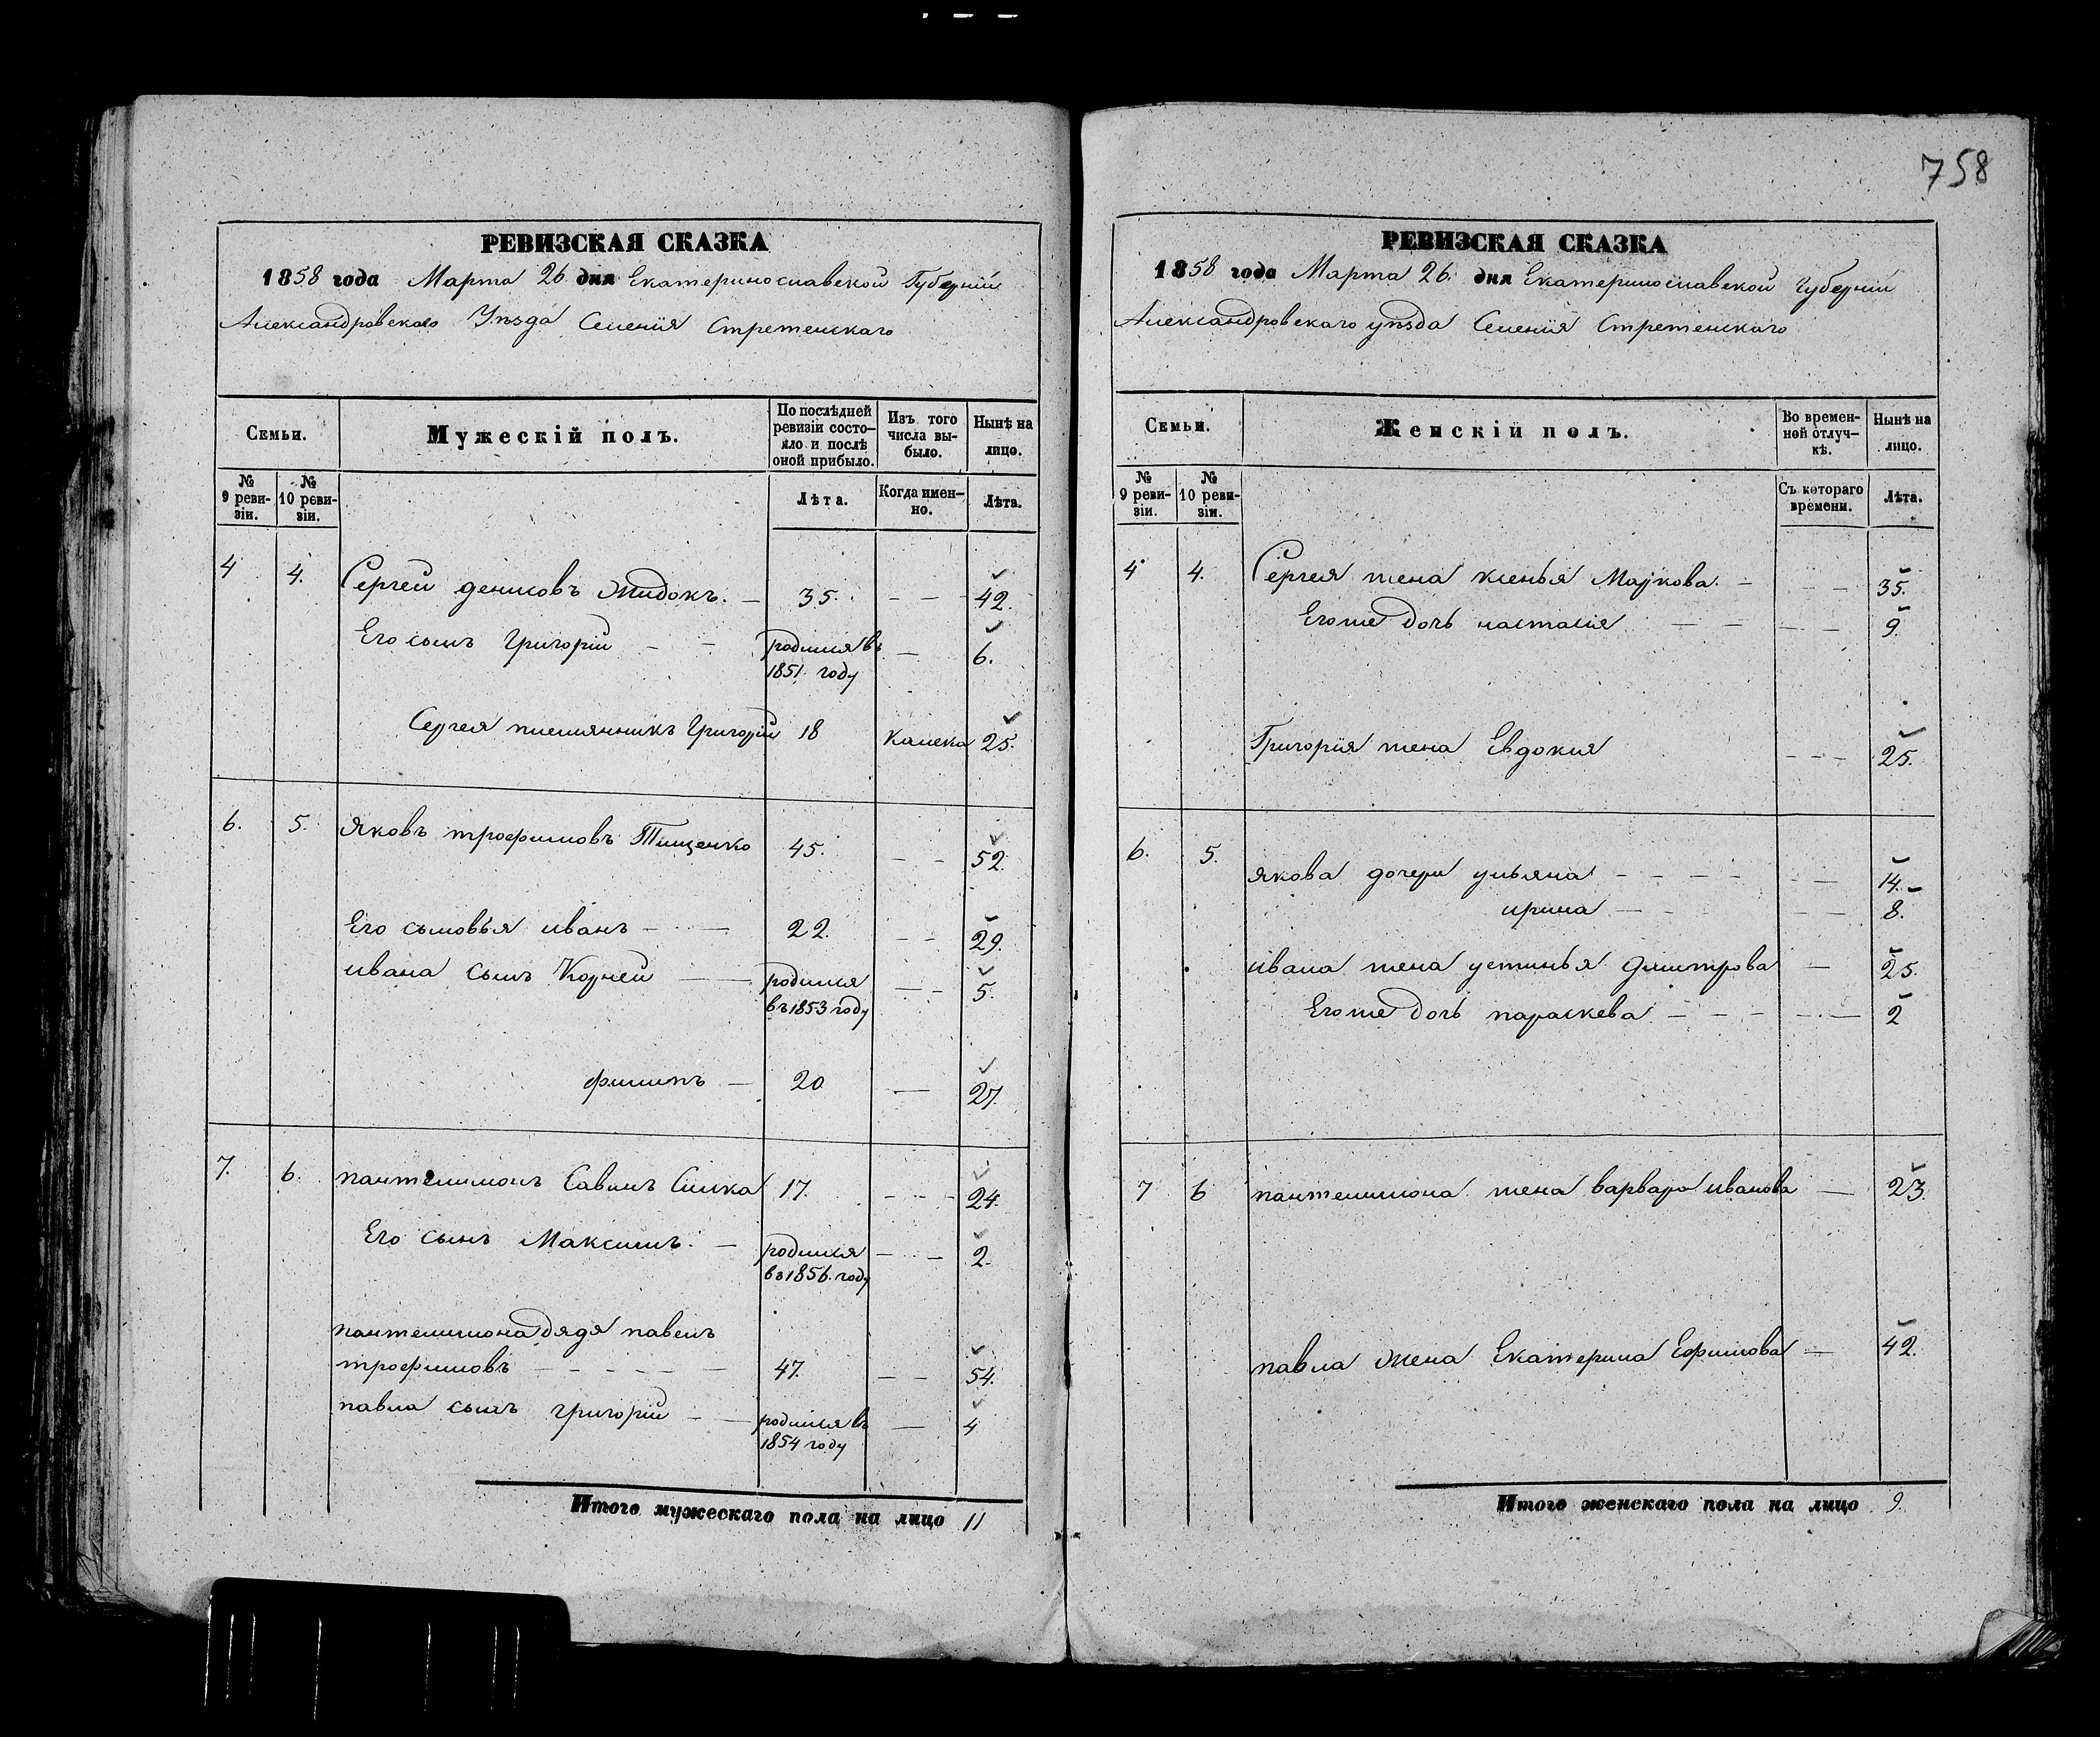 758
РЕВИЗСКАЯ СКАЗКА
1858 года Марта 26 дня Екатеринославской Губерніи
Александровского Уѣзда Селенія Стретенскаго
Семьи.
Мужескій полъ.
По послѣдней ревизіи состояло и послѣ оной прибыло.
Изъ того числа выбыло.
Нынѣ на лицо.
№ 9 ревизіи.
№ 10 ревизіи.
Лѣта.
Когда именно.
Лѣта.
4 4. Сергей денисовъ Жидокъ. — 35. — — — 42.
Его сынъ Григорій — — родился въ 1851 году — 6.
Сергея племянникъ Григорій 18 Калека 25.
6. 5. Яковъ трофимовъ Тищенко 45. — — 52.
Его сыновья иванъ — — 22. — — 29.
ивана сынъ Корней — — родился въ 1853 году — — 5.
филипъ — 20 — 27.
7. 6. пантелимонъ Савинъ Слика 17. — — — 24.
Его сынъ Максимъ. — родился въ 1856. году — — — 2.
пантелимона дядя павелъ
трофимовъ — — — — — 47. — — 54.
павла сынъ григорій — — родился въ 1854 году — 4
Итого мужескаго пола на лицо 11
РЕВИЗСКАЯ СКАЗКА
1858 года Марта 26. дня Екатеринославской Губерніи
Александровскаго уѣзда Селенія Стретенскаго
Семьи.
Женскій полъ.
Во временной отлучкѣ.
Нынѣ на лицо.
№ 9 ревизіи.
№ 10 ревизіи.
Съ котораго времени.
Лѣта.
4 4. Сергея жена ксенья Маркова. — — — 35.
Егоже дочь настасия — — — — 9.
Григорія жена Евдокия — — — 25.
6. 5. якова дочери ульяна — — — — — — 14. —
ирина — — — — 8.
ивана жена устинья дмитрова — 25.
Егоже дочь параскева — — — — — 2
7 6 пантелимона жена варвара иванова — 23.
павла жена Екатерина Ефимова — 42.
Итого женскаго пола на лицо 9.